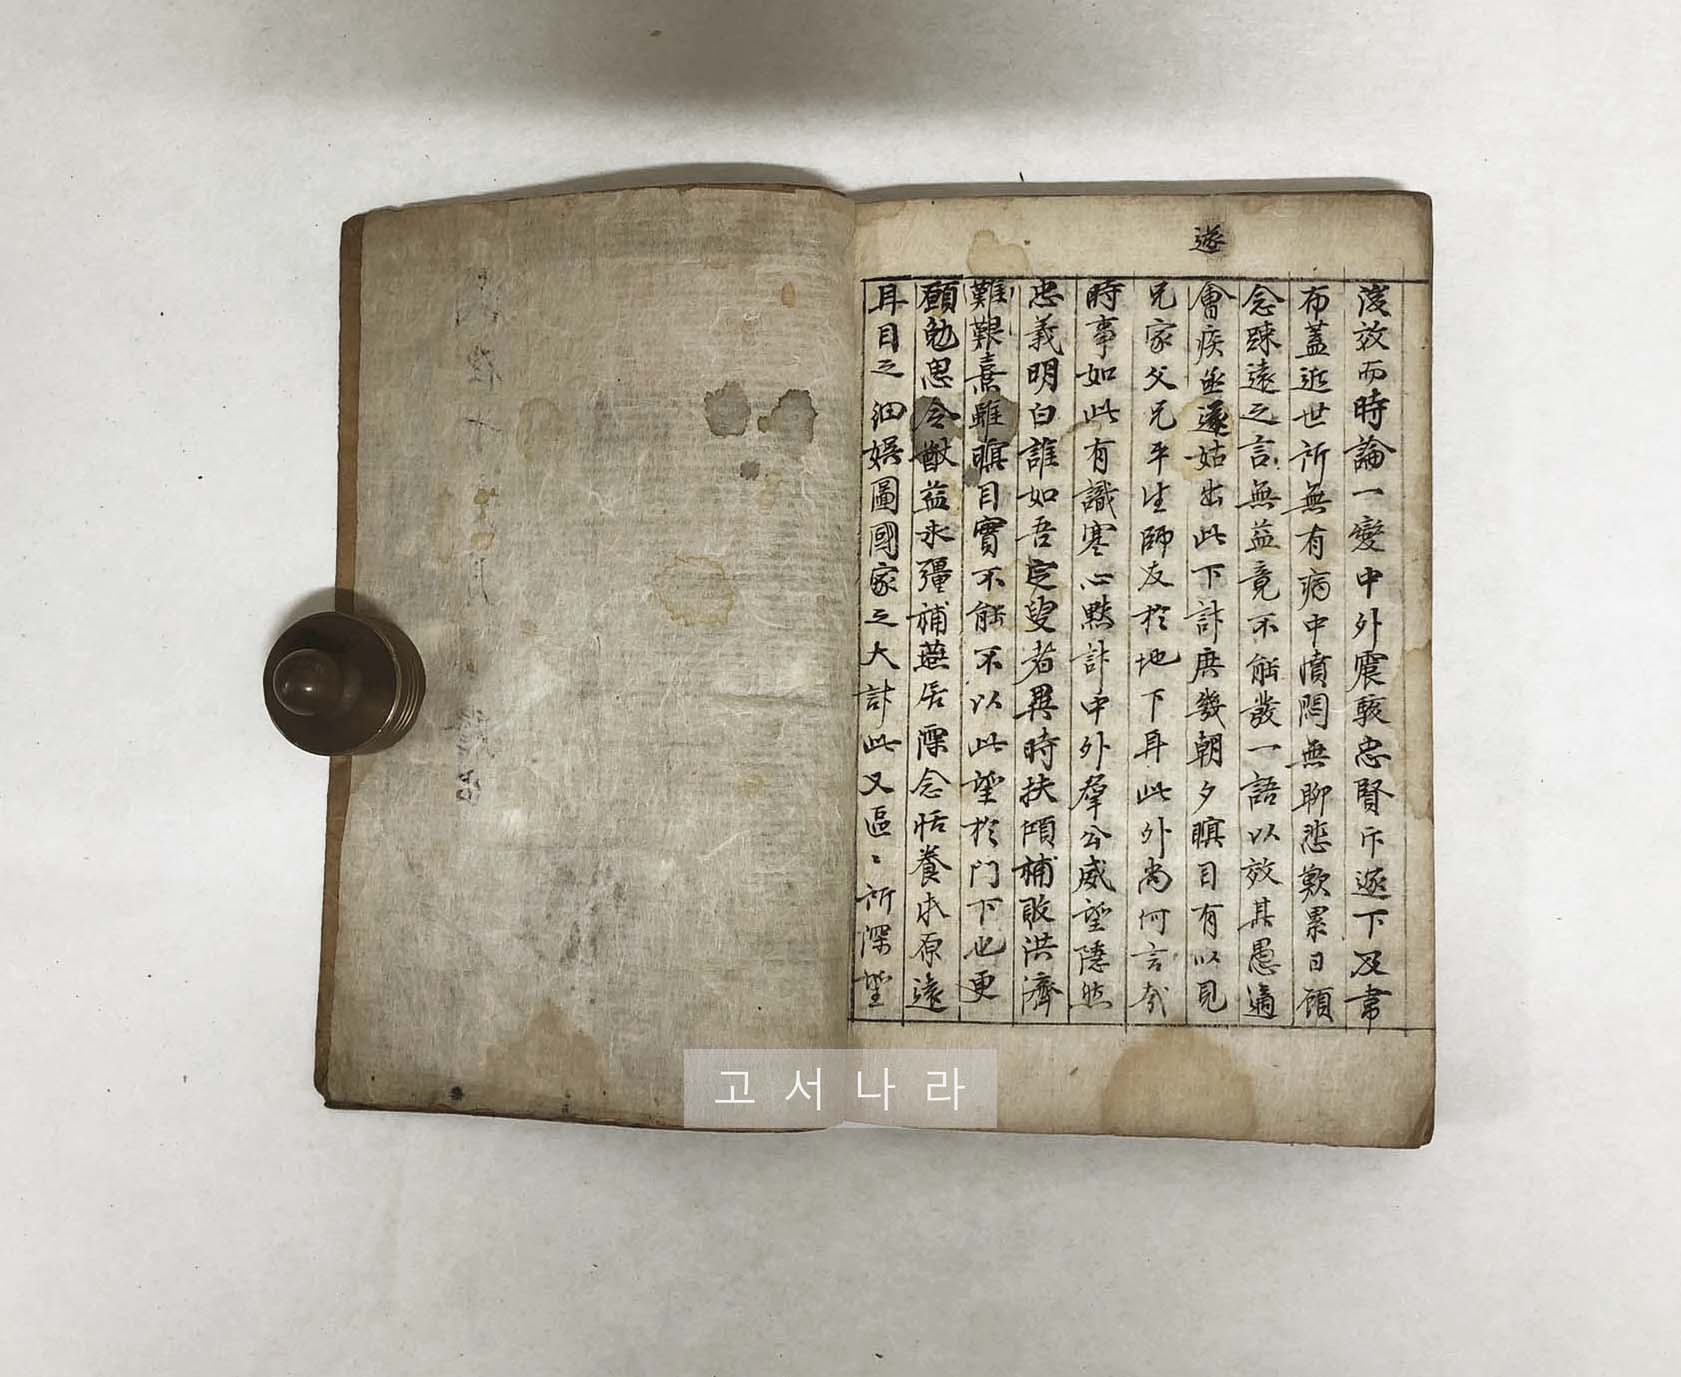 遂
後效而時論一變中外震駭忠賢斥逐下及韋
布蓋近世所無有病中憤悶無聊悲歎累日顧
念踈遠之言無益竟不能發一語以效其愚適
會疾亟遂姑出此下計庶幾朝夕瞑目有以見
兄家父兄平生師友於地下耳此外尚何言哉
時事如此有識寒心黙計中外羣公威望隱然
忠義明白誰如吾定叟者異時扶傾補敗洪濟
難艱熹雖瞑目實不能不以此望於門下也更
願勉思令猷益求彊補燕居深念恬養本原遠
耳目之細娯圖國家之大計此又區〻所深望
고서나라